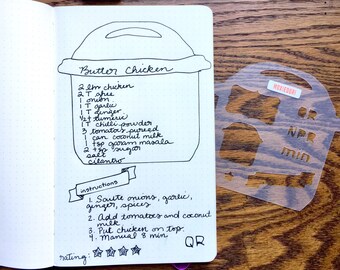 Butter Chicken
2 lbs chicken
2 T ghee
1 onion
1 T garlic
1 T ginger
1/2 t tumeric
1 T chilli powder
3 tomatos pureed
1 can coconut milk
1 tsp garam masala
2 tsp sugar
salt
cilantro
instructions
1. Saute onions, garlic,
ginger, spices
2. Add tomatoes and coconut
milk.
3. Put chicken on top.
4. Manual 8 min.
QR
rating:
QR
NPR
min